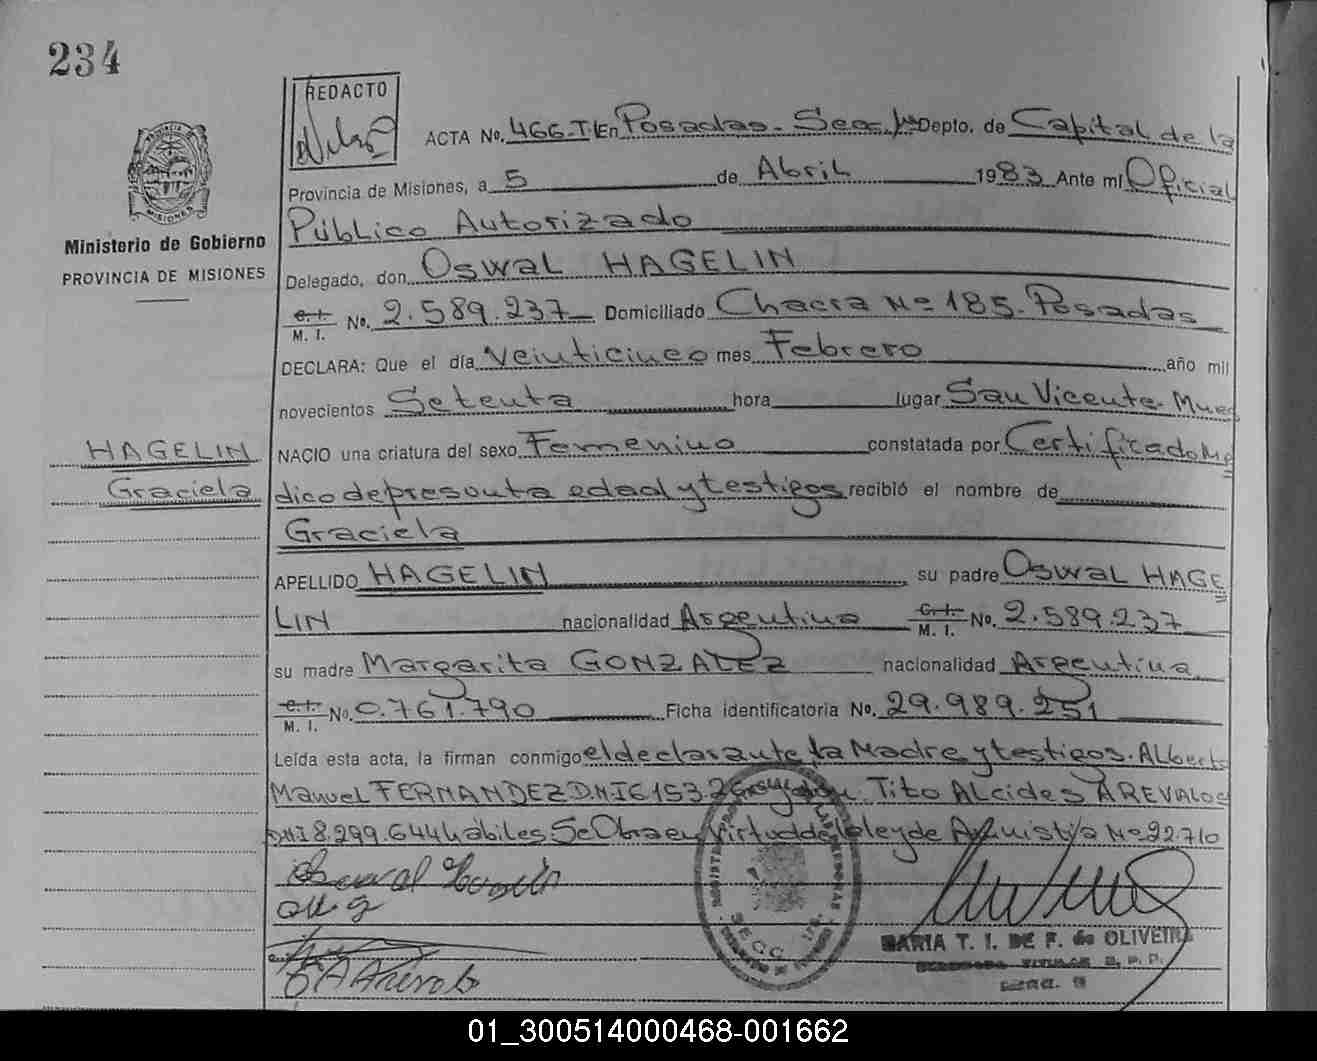 234
REDACTO
ACTA No. 466-T I En Posadas - Secc. 1ra Depto. de Capital de la
Provincia de Misiones, a 5 de Abril 1983 Ante mi Oficial
Público Autorizado
Ministerio de Gobierno
PROVINCIA DE MISIONES
Delegado, don Oswal HAGELIN
C. I.
M. I. No. 2.589.237 Domiciliado Chacra No 185. Posadas
DECLARA: Que el día Veinticinco mes Febrero año mil
novecientos Setenta hora lugar San Vicente. Mnes
HAGELIN
Graciela
NACIO una criatura del sexo Femenino constatada por Certificado Mé
dico de presunta edad y testigos recibió el nombre de
Graciela
APELLIDO HAGELIN su padre Oswal HAGE
LIN nacionalidad Argentina C. I. M. I. No. 2.589.237
su madre Margarita GONZALEZ nacionalidad Argentina
C. I.
M. I. No. 0.761.790 Ficha identificatoria No. 29.989.251
Leída esta acta, la firman conmigo el declarante, la Madre y testigos. Alberto
Manuel FERNANDEZ D.N.I 6153.26 y don Tito Alcides AREVALOS
DNI 8.299.644 hábiles Se Obra en Virtud de la ley de Amnistia No 22.710
MARIA T. I. DE F. de OLIVEIRA
01_300514000468-001662